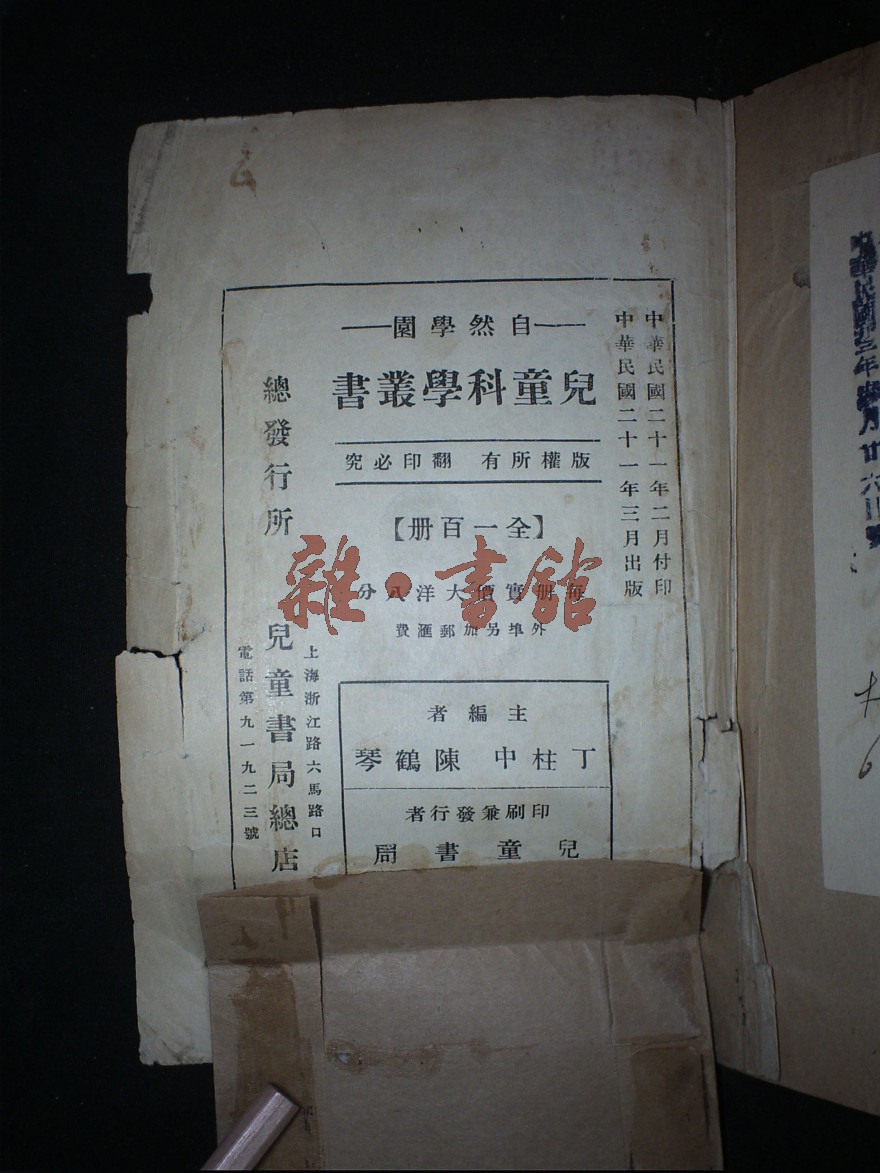 中華民國二十一年二月付印
中華民國二十一年三月出版
——自然學園——
兒童科學叢書
版權所有 翻印必究
【全一百册】
每册實價大洋八分
外埠另加郵滙費
主編者
丁柱中 陳鶴琴
印刷兼發行者
兒童書局
總發行所 兒童書局總店
上海浙江路六馬路口
電話第九一九二三號
雜·書館